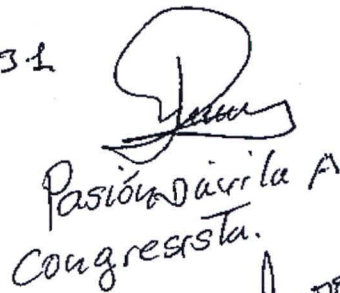 31
Pasión Dávila A
Congresista.